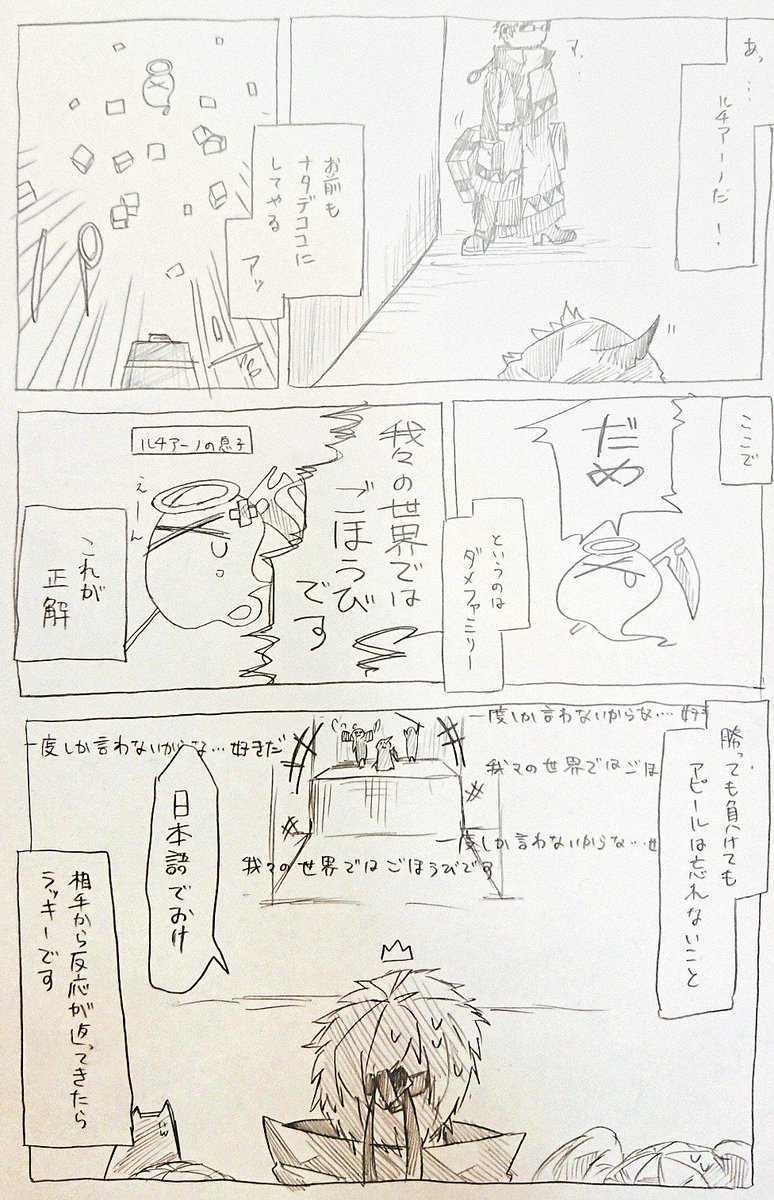 あっ…
ルチアーノだ!
お前も
ナタデココに
してやる
アッ
ここで
だめ
というのは
ダメファミリー
我々の世界では
ごほうび
です
ルチアーノの息子
えーん
これが
正解
勝っても負けても
アピールは忘れないこと
一度しか言わないからな…好きだ
度しか言わないからな…好き
我々の世界ではごほ
一度しか言わないからな…
我々の世界ではごほうびです
日本語でおけ
相手から反応が返ってきたら
ラッキーです